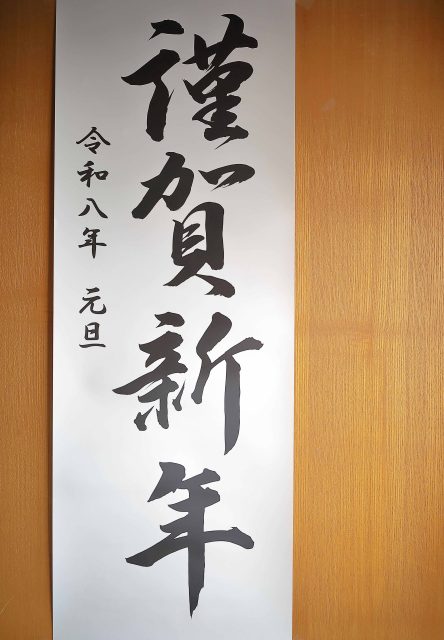 謹賀新年
令和八年 元旦